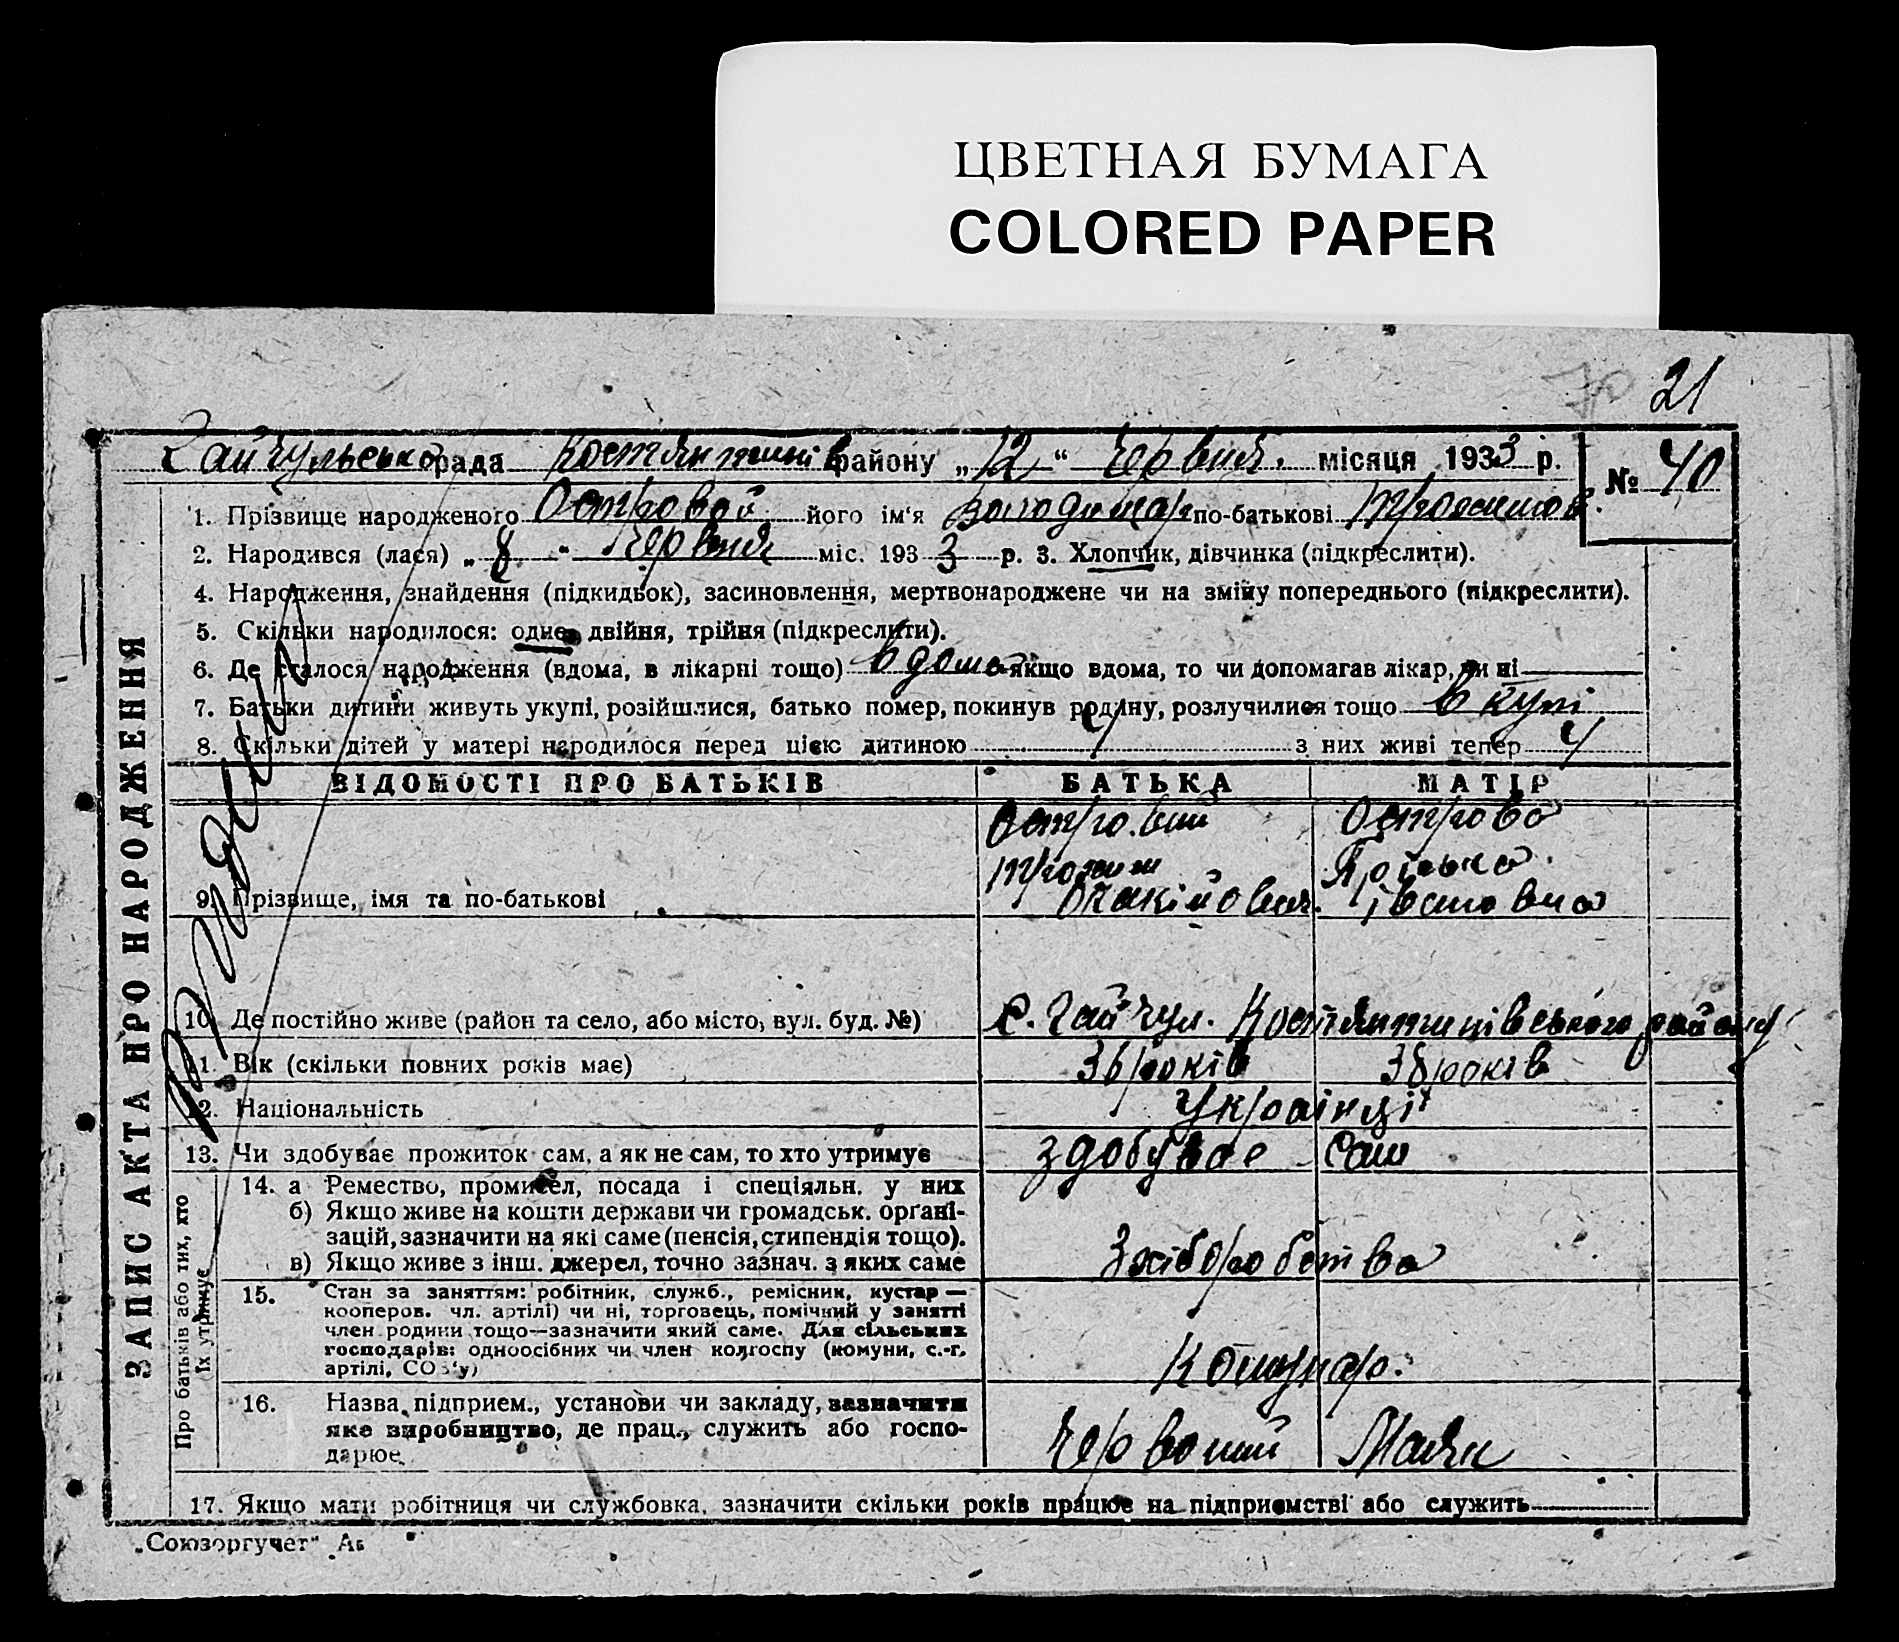 ЦВЕТНАЯ БУМАГА
COLORED PAPER
21
Гайчульсько рада Костянтинів району „12“ червня місяця 1933 р.
№ 40
1. Прізвище народженого Островой його ім‘я Володимир по-батькові Трохимов.
2. Народився (лася) „8 - Червня міс. 1933 р. 3. Хлопчик, дівчинка (підкреслити).
4. Народження, знайдення (підкидьок), засиновлення, мертвонароджене чи на зміну попереднього (підкреслити).
5. Скільки народилося: одне, двійня, трійня (підкреслити).
6. Де сталося народження (вдома, в лікарні тощо) вдома якщо вдома, то чи допомагав лікар, чи ні
7. Батьки дитини живуть укупі, розійшлися, батько помер, покинув родину, розлучилися тощо вкупі
8. Скільки дітей у матері народилося перед цією дитиною 4 з них живі тепер 4
ЗАПИС АКТА ПРО НАРОДЖЕННЯ
ВІДОМОСТІ ПРО БАТЬКІВ БАТЬКА МАТІР
Островий Острова
Трохим
9. Прізвище, імя та по-батькові Івановна
10. Де постійно живе (район та село, або місто, вул. буд. №) С. Гайчул. Костянтинівського району
11. Вік (скільки повних років має) 36 років 38 років
12. Національність Українці
13. Чи здобуває прожиток сам, а як не сам, то хто утримує здобуває сам
Про батьків або тих, хто їх утримує
14. а Ремество, промисел, посада і спеціяльн. у них
б) Якщо живе на кошти держави чи громадськ. органі-
зацій, зазначити на які саме (пенсія, стипендія тощо).
в) Якщо живе з інш. джерел, точно зазнач. з яких саме
З хліборобства
15. Стан за заняттям: робітник, служб., ремісник, кустар —
кооперов. чл. артілі) чи ні, торговець, помічний у занятті
член родини тощо—зазначити який саме. Для сільських
господарів: одноосібних чи член колгоспу (комуни, с.-г.
артілі, СОЗ‘у)
Комунар.
16. Назва підприєм., установи чи закладу, зазначити
яке виробництво, де прац., служить або госпо-
дарює.
Червоний Маяк
17. Якщо мати робітниця чи службовка, зазначити скільки років працює на підприємстві або служить
„Союзоргучет“